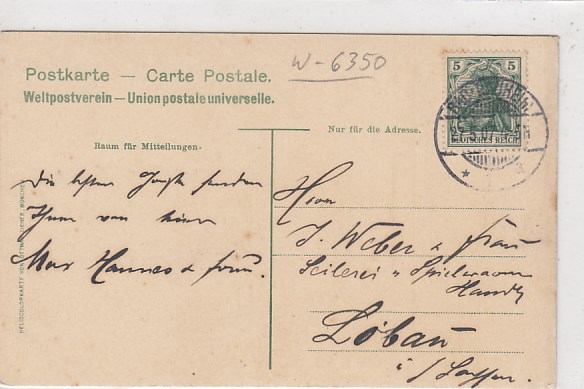 W-6350
Postkarte — Carte Postale.
Weltpostverein — Union postale universelle.
5 5
DEUTSCHES REICH
Nur für die Adresse.
Raum für Mitteilungen.
Die besten Grüße senden
Ihnen von hier
Max Hannes & Frau.
Herrn
J. Weber & Frau
Seilerei u Spielwaren
Handlg
Löbau
i/Sachsen.